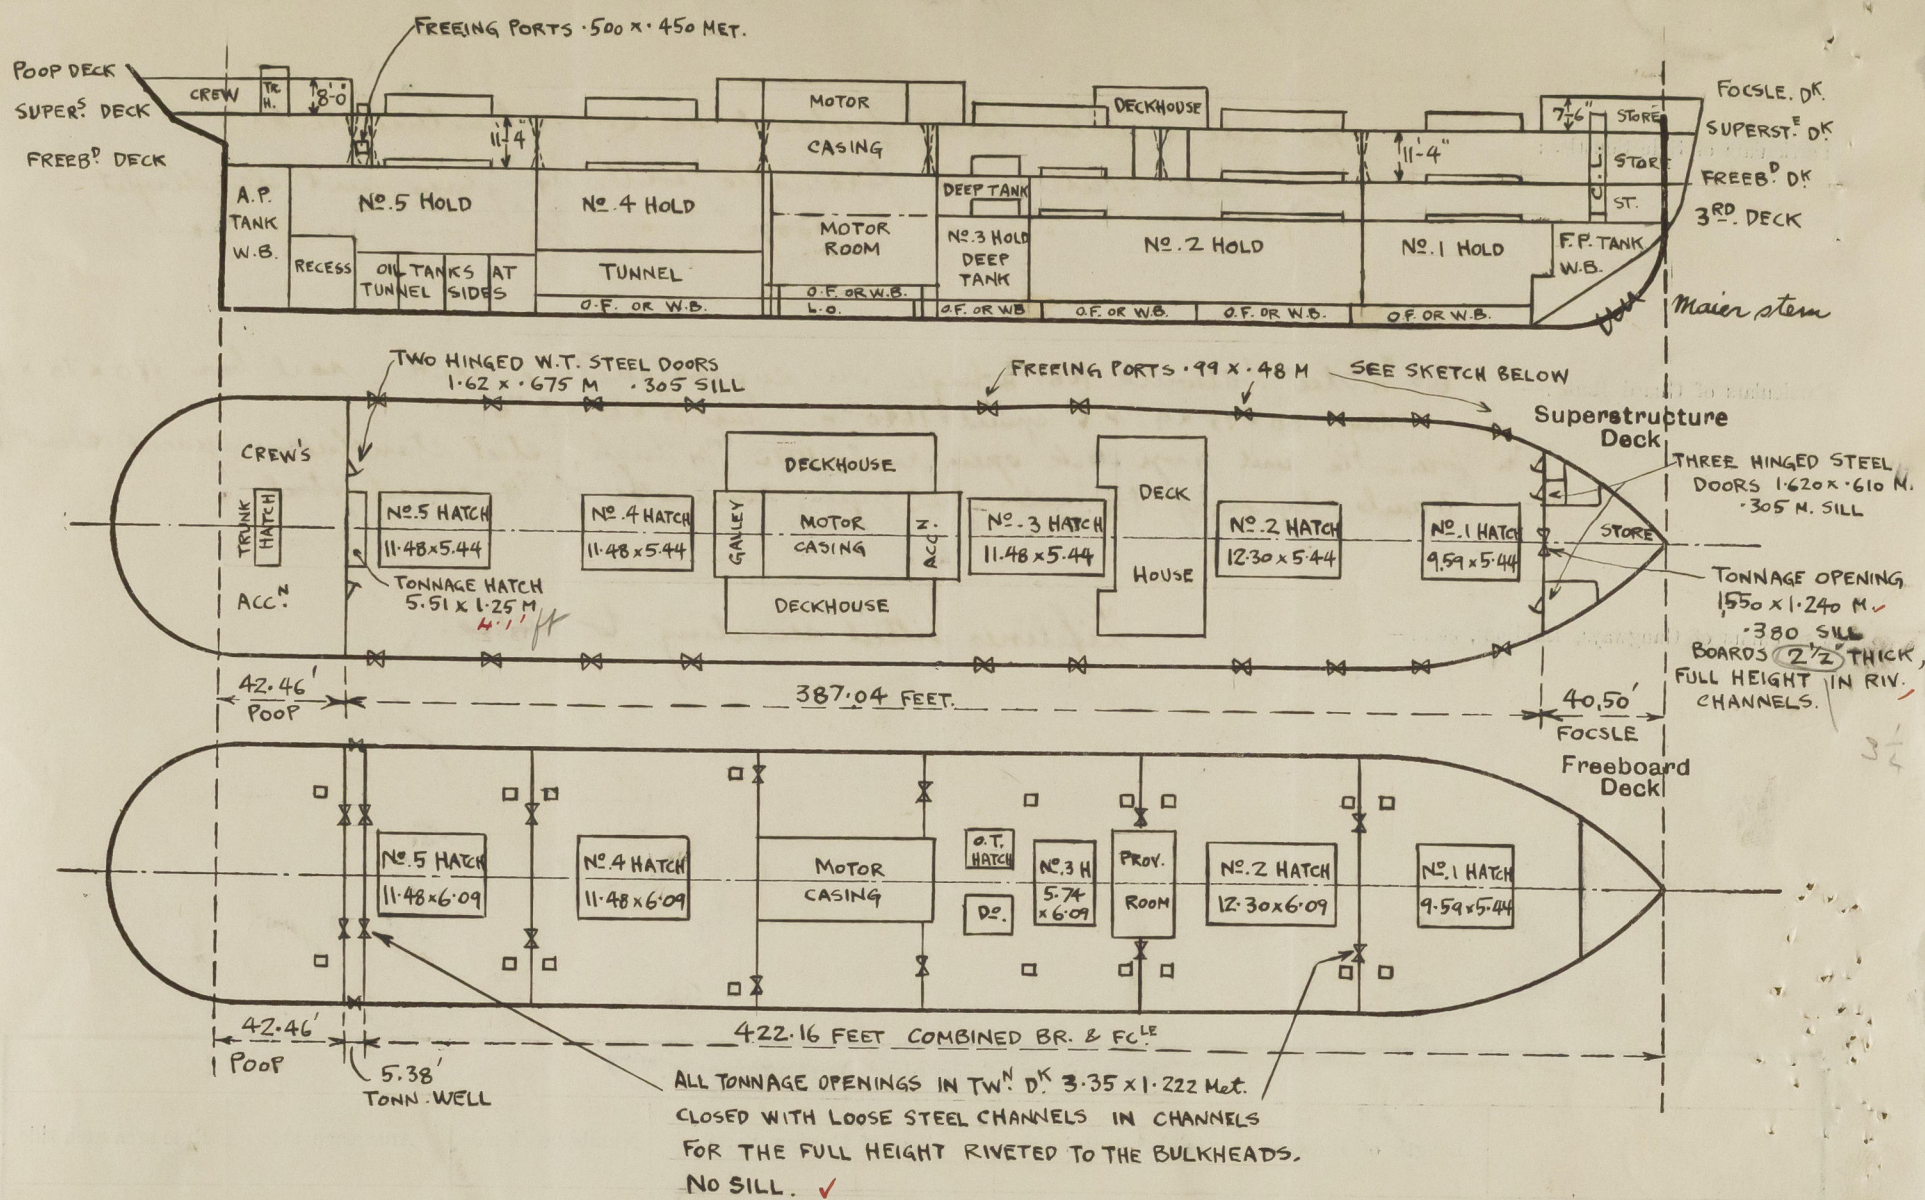 FREEING PORTS ·500 x ·450 MET.
POOP DECK
SUPERS. DECK
FREEBD DECK
CREW
TR.
H.
8'-0"
11'-4"
MOTOR
CASING
DECKHOUSE
11'-4"
7'-6"
STORE
STORE
ST.
C.L.
FOCSLE. DK.
SUPERST.E DK
FREEB.D DK
3RD. DECK
A.P.
TANK
W.B.
No.5 HOLD
RECESS
OIL TANKS AT
TUNNEL SIDES
No.4 HOLD
TUNNEL
O.F. OR W.B.
MOTOR
ROOM
O.F. OR W.B.
L.O.
DEEP TANK
No.3 HOLD
DEEP
TANK
O.F. OR WB
No.2 HOLD
O.F. OR W.B.
O.F. OR W.B.
No.1 HOLD
O.F. OR W.B.
F.P. TANK
W.B.
Maier stem
TWO HINGED W.T. STEEL DOORS
1·62 x ·675 M ·305 SILL
FREEING PORTS ·99 x ·48 M
SEE SKETCH BELOW
Superstructure
Deck
THREE HINGED STEEL
DOORS 1·620 x ·610 M.
·305 M. SILL
CREW'S
TRUNK
HATCH
ACC.N
No.5 HATCH
11·48 x 5·44
TONNAGE HATCH
5.51 x 1·25 M
4·1' ft
No.4 HATCH
11·48 x 5·44
DECKHOUSE
GALLEY
MOTOR
CASING
ACC N.
DECKHOUSE
No.3 HATCH
11·48 x 5·44
DECK
HOUSE
No.2 HATCH
12·30 x 5·44
No.1 HATCH
9.59 x 5·44
STORE
TONNAGE OPENING
1,550 x 1·240 M.
·380 SILL
BOARDS 2½" THICK,
FULL HEIGHT IN RIV.
CHANNELS.
42·46'
POOP
387·04 FEET.
40,50'
FOCSLE
Freeboard
Deck
No.5 HATCH
11·48 x 6·09
No.4 HATCH
11·48 x 6·09
MOTOR
CASING
O.T.
HATCH
Do.
No.3 H
5.74
x 6·09
PROV.
ROOM
No.2 HATCH
12·30 x 6·09
No.1 HATCH
9·59 x 5·44
42·46'
POOP
5.38'
TONN. WELL
422·16 FEET COMBINED BR. & FC.LE
ALL TONNAGE OPENINGS IN TWN. DK. 3·35 x 1·222 Met.
CLOSED WITH LOOSE STEEL CHANNELS IN CHANNELS
FOR THE FULL HEIGHT RIVETED TO THE BULKHEADS.
NO SILL.